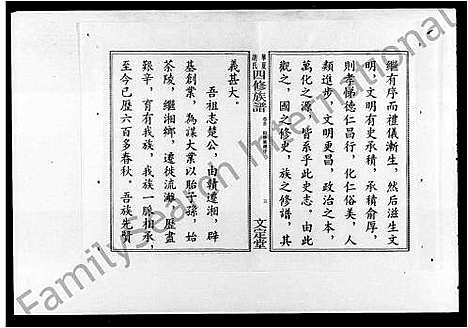 繼有序而禮儀漸生，然后滋生文
明。文明有史承積，承積俞厚，
則孝悌德仁昌行，化仁俗美，人
類進步，文明更昌，政治之本，
萬化之源，皆系乎此史志。由此
觀之，國之修史，族之修譜，其
四修族譜
文定堂
義甚大。
吾祖志楚公，由贛遷湘，辟
基創業，為謀大業以貽子孫，始
茶陵，繼湘鄉，遷徙流澈，歷盡
艱辛，育有我族，我族一脈相承，
至今已歷六百多春秋。吾族先賢
FamilySearch International